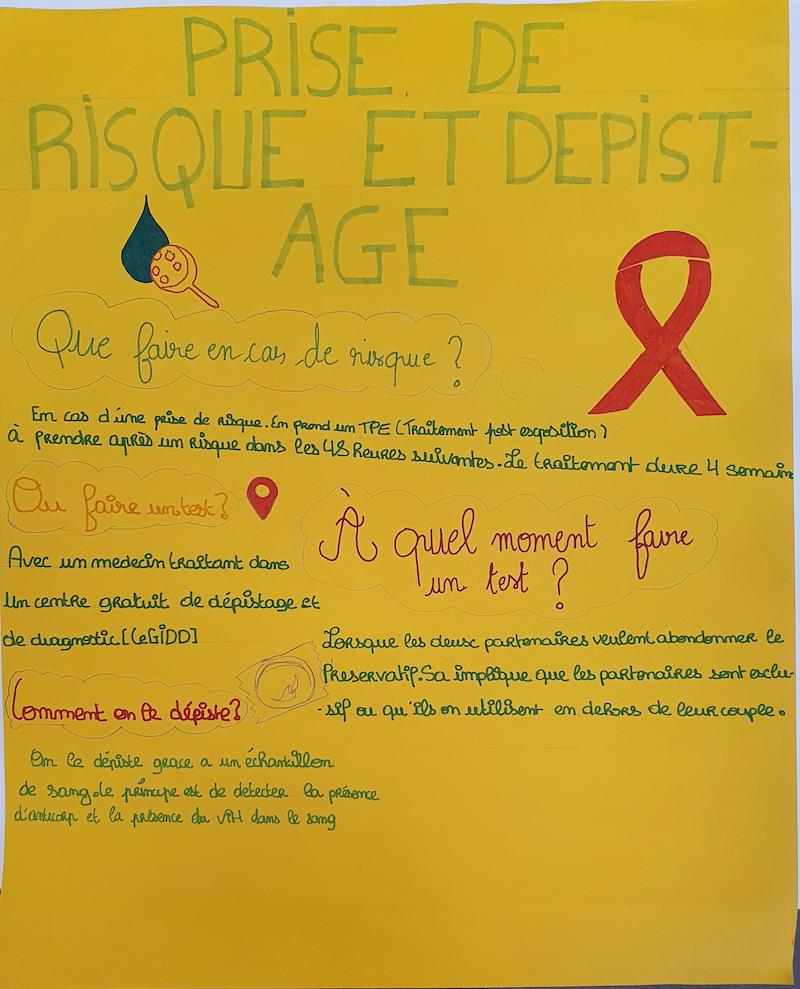 PRISE DE
RISQUE ET DEPIST-
AGE
Que faire en cas de risque ?
En cas d'une prise de risque. En prend un TPE (Traitement post exposition)
à prendre après un risque dans les 48 heures suivantes. Le traitement dure 4 semain
Ou faire un test ?
Avec un medecin traitant dans
Un centre gratuit de dépistage et
de diagnostic [CeGIDD]
À quel moment faire
un test ?
Lorsque les deux partenaires veulent abondonner le
Preservatif. Sa implique que les partenaires sont exclu-
-sif ou qu'ils on utilisent en dehors de leur couple.
Comment on le dépiste ?
On le dépiste grace a un échantillon
de sang. le principe est de detecter la présence
d'anticorp et la présence du VIH dans le sang